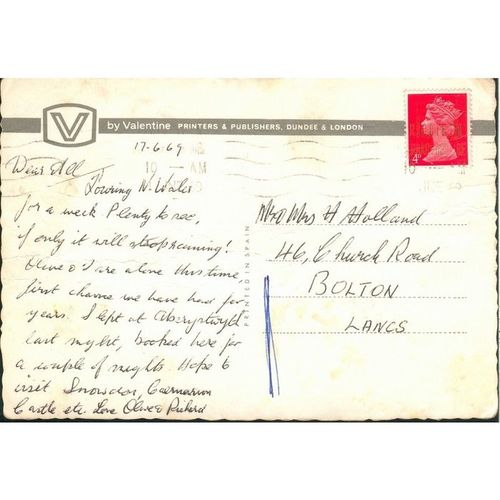 by Valentine PRINTERS & PUBLISHERS, DUNDEE & LONDON
4d
17-6-69
10 AM
Dear All
Touring N. Wales
for a week Plenty to see,
if only it will stop raining!
Olive & I are alone this time
first chance we have had for
years. Slept at Aberystwyth
last night, booked here for
a couple of nights. Hope to
visit Snowdon, Caernarvon
Castle etc. Love Olive & Richard
PRINTED IN SPAIN
Mr & Mrs H Holland
46, Church Road
BOLTON
LANCS